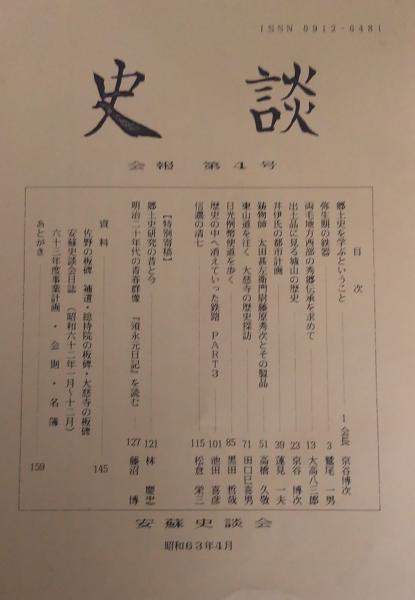 ISSN 0912-6481
史談
会報 第4号
目次
郷土史を学ぶということ 1 会長 京谷博次
弥生期の鉄器 3 鷲尾一男
両毛地方西部の秀郷伝承を求めて 13 大高八三郎
出土品に見る城山の歴史 23 京谷博次
井伊氏の都市計画 39 蓮見一夫
鋳物師 太田甚左衛門尉藤原秀次とその製品 51 高橋久敬
東山道を往く 大慈寺の歴史探訪 71 田口巳喜男
日光例幣使道を歩く 85 黒田哲哉
歴史の中へ消えていった鉄路 PART3 101 池田喜彦
信濃の清七 115 松倉栄三
【特別寄稿】
郷土史研究の昔と今 121 林慶忠
明治二十年代の青春群像 『須永元日記』を読む 127 藤沼博
資料 145
佐野の板碑 補遺・総持院の板碑・大慈寺の板碑
安蘇史談会日誌(昭和六十二年一月〜十二月)
六十三年度事業計画・会則・名簿
あとがき 159
安蘇史談会
昭和63年4月